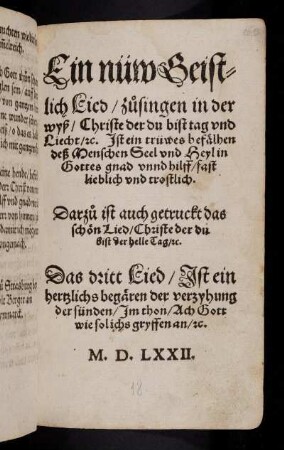 Ein nüw Geist-
lich Lied / zůsingen in der
wyß / Christe der du bist tag vnd
Liecht / ꝛc. Ist ein trüwes befälhen
deß Menschen Seel vnd Heyl in
Gottes gnad vnnd hilff / fast
lieblich vnd trostlich.
Darzů ist auch getruckt das
schön Lied / Christe der du
bist der helle Tag / ꝛc.
Das dritt Lied / Ist ein
hertzlichs begären der verzyhung
der sünden / Im thon / Ach Gott
wie sol ichs gryffen an / ꝛc.
M. D. LXXII.
18.